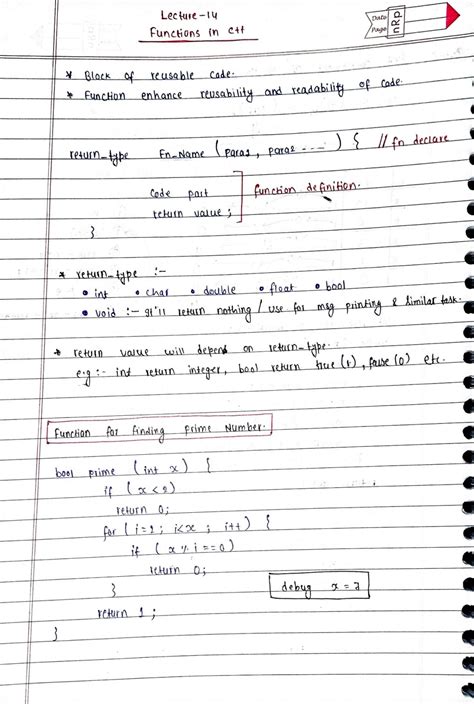 Lecture-14
Functions in C++
Date
Page
* Block of reusable code.
* Function enhance reusability and readability of code.
return_type Fn_Name (para1, para2 ---) { // fn declare
Code part
return value;
function definition.
}
* return_type :-
• int • char • double • float • bool
• void :- It'll return nothing / use for msg printing & similar task.
* return value will depend on return-type.
e.g :- int return integer, bool return true (1), false (0) etc.
Function for finding prime Number.
bool prime (int x) {
if (x<2)
return 0;
for (i=2; i<x ; i++) {
if (x % i == 0)
return 0;
}
debug x = 2
return 1;
}